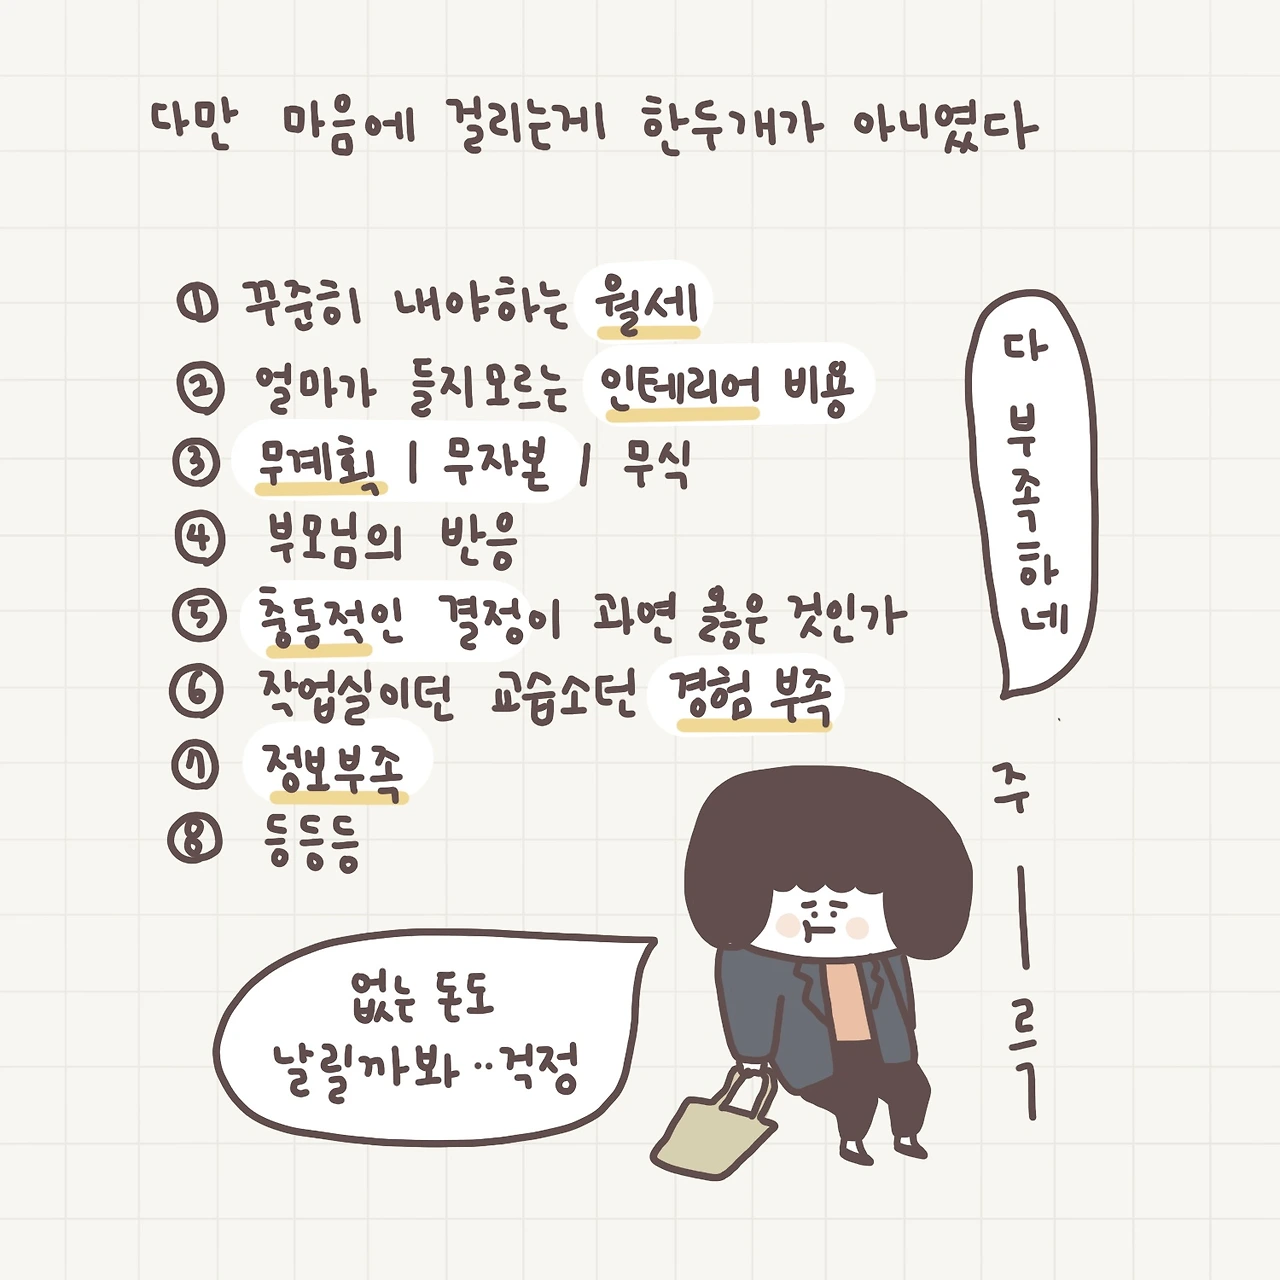 다만 마음에 걸리는게 한두개가 아니였다
① 꾸준히 내야하는 월세
② 얼마가 들지모르는 인테리어 비용
③ 무계획 / 무자본 / 무식
④ 부모님의 반응
⑤ 충동적인 결정이 과연 옳은 것인가
⑥ 작업실이던 교습소던 경험 부족
⑦ 정보부족
⑧ 등등등
다 부족하네
주ㅡ륵
없는 돈도
날릴까봐..걱정